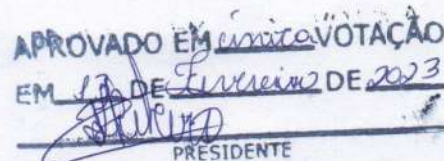 APROVADO EM única VOTAÇÃO
EM DE Fevereiro DE 2023
PRESIDENTE